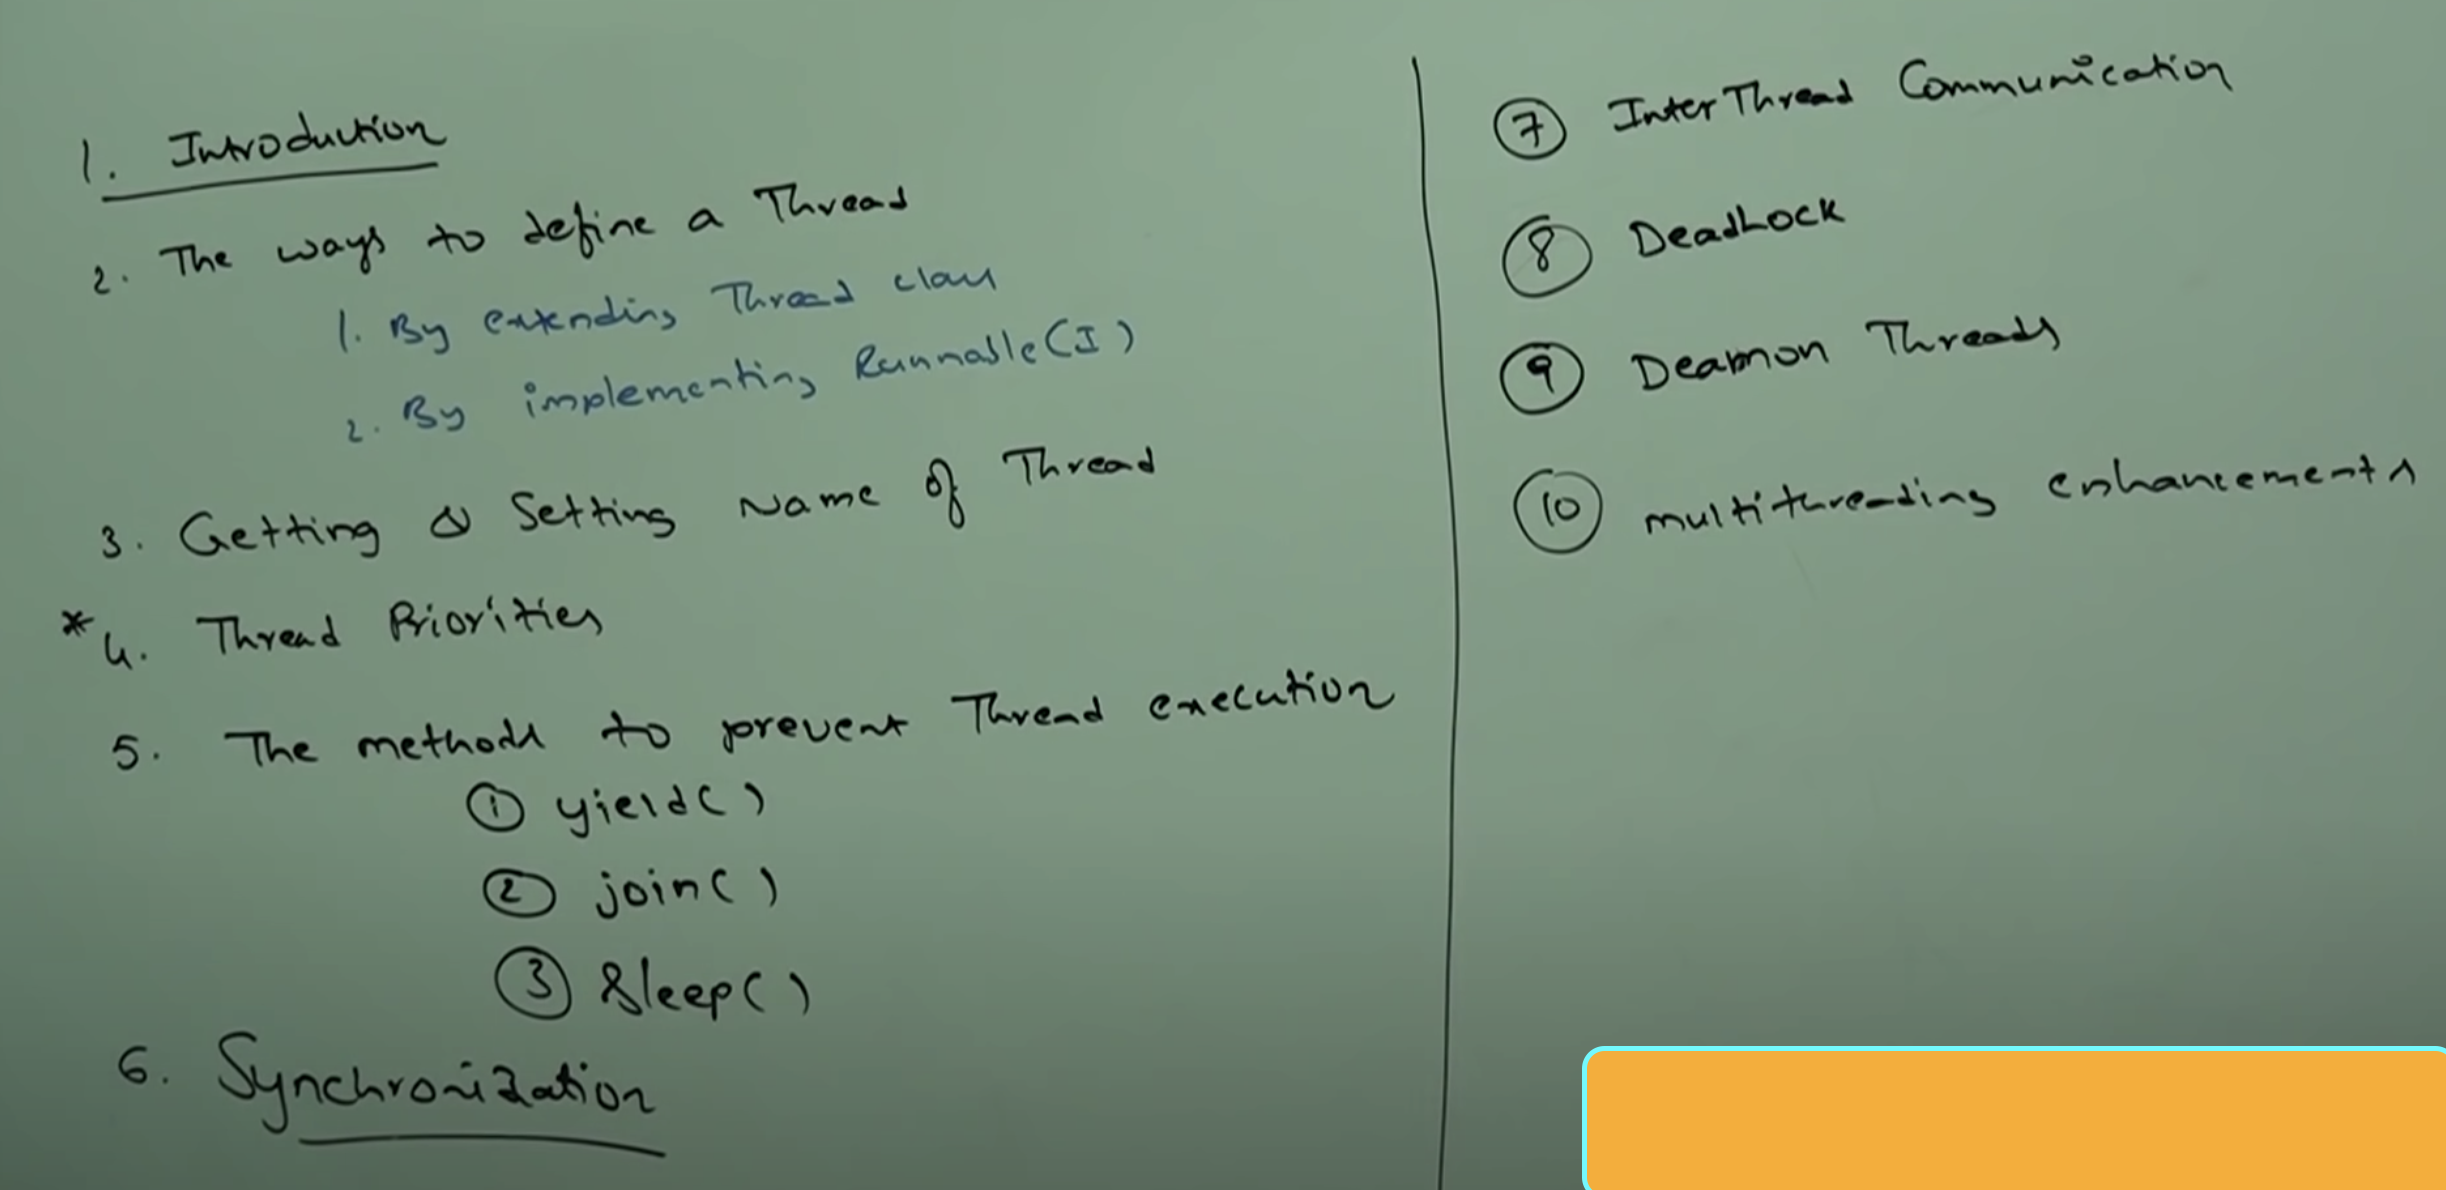 1. Introduction
2. The ways to define a Thread
1. By extending Thread class
2. By implementing Runnable(I)
3. Getting & Setting Name of Thread
* 4. Thread Priorities
5. The methods to prevent Thread execution
① yield()
② join()
③ Sleep()
6. Synchronization
⑦ InterThread Communication
⑧ DeadLock
⑨ Deamon Threads
⑩ multithreading enhancements